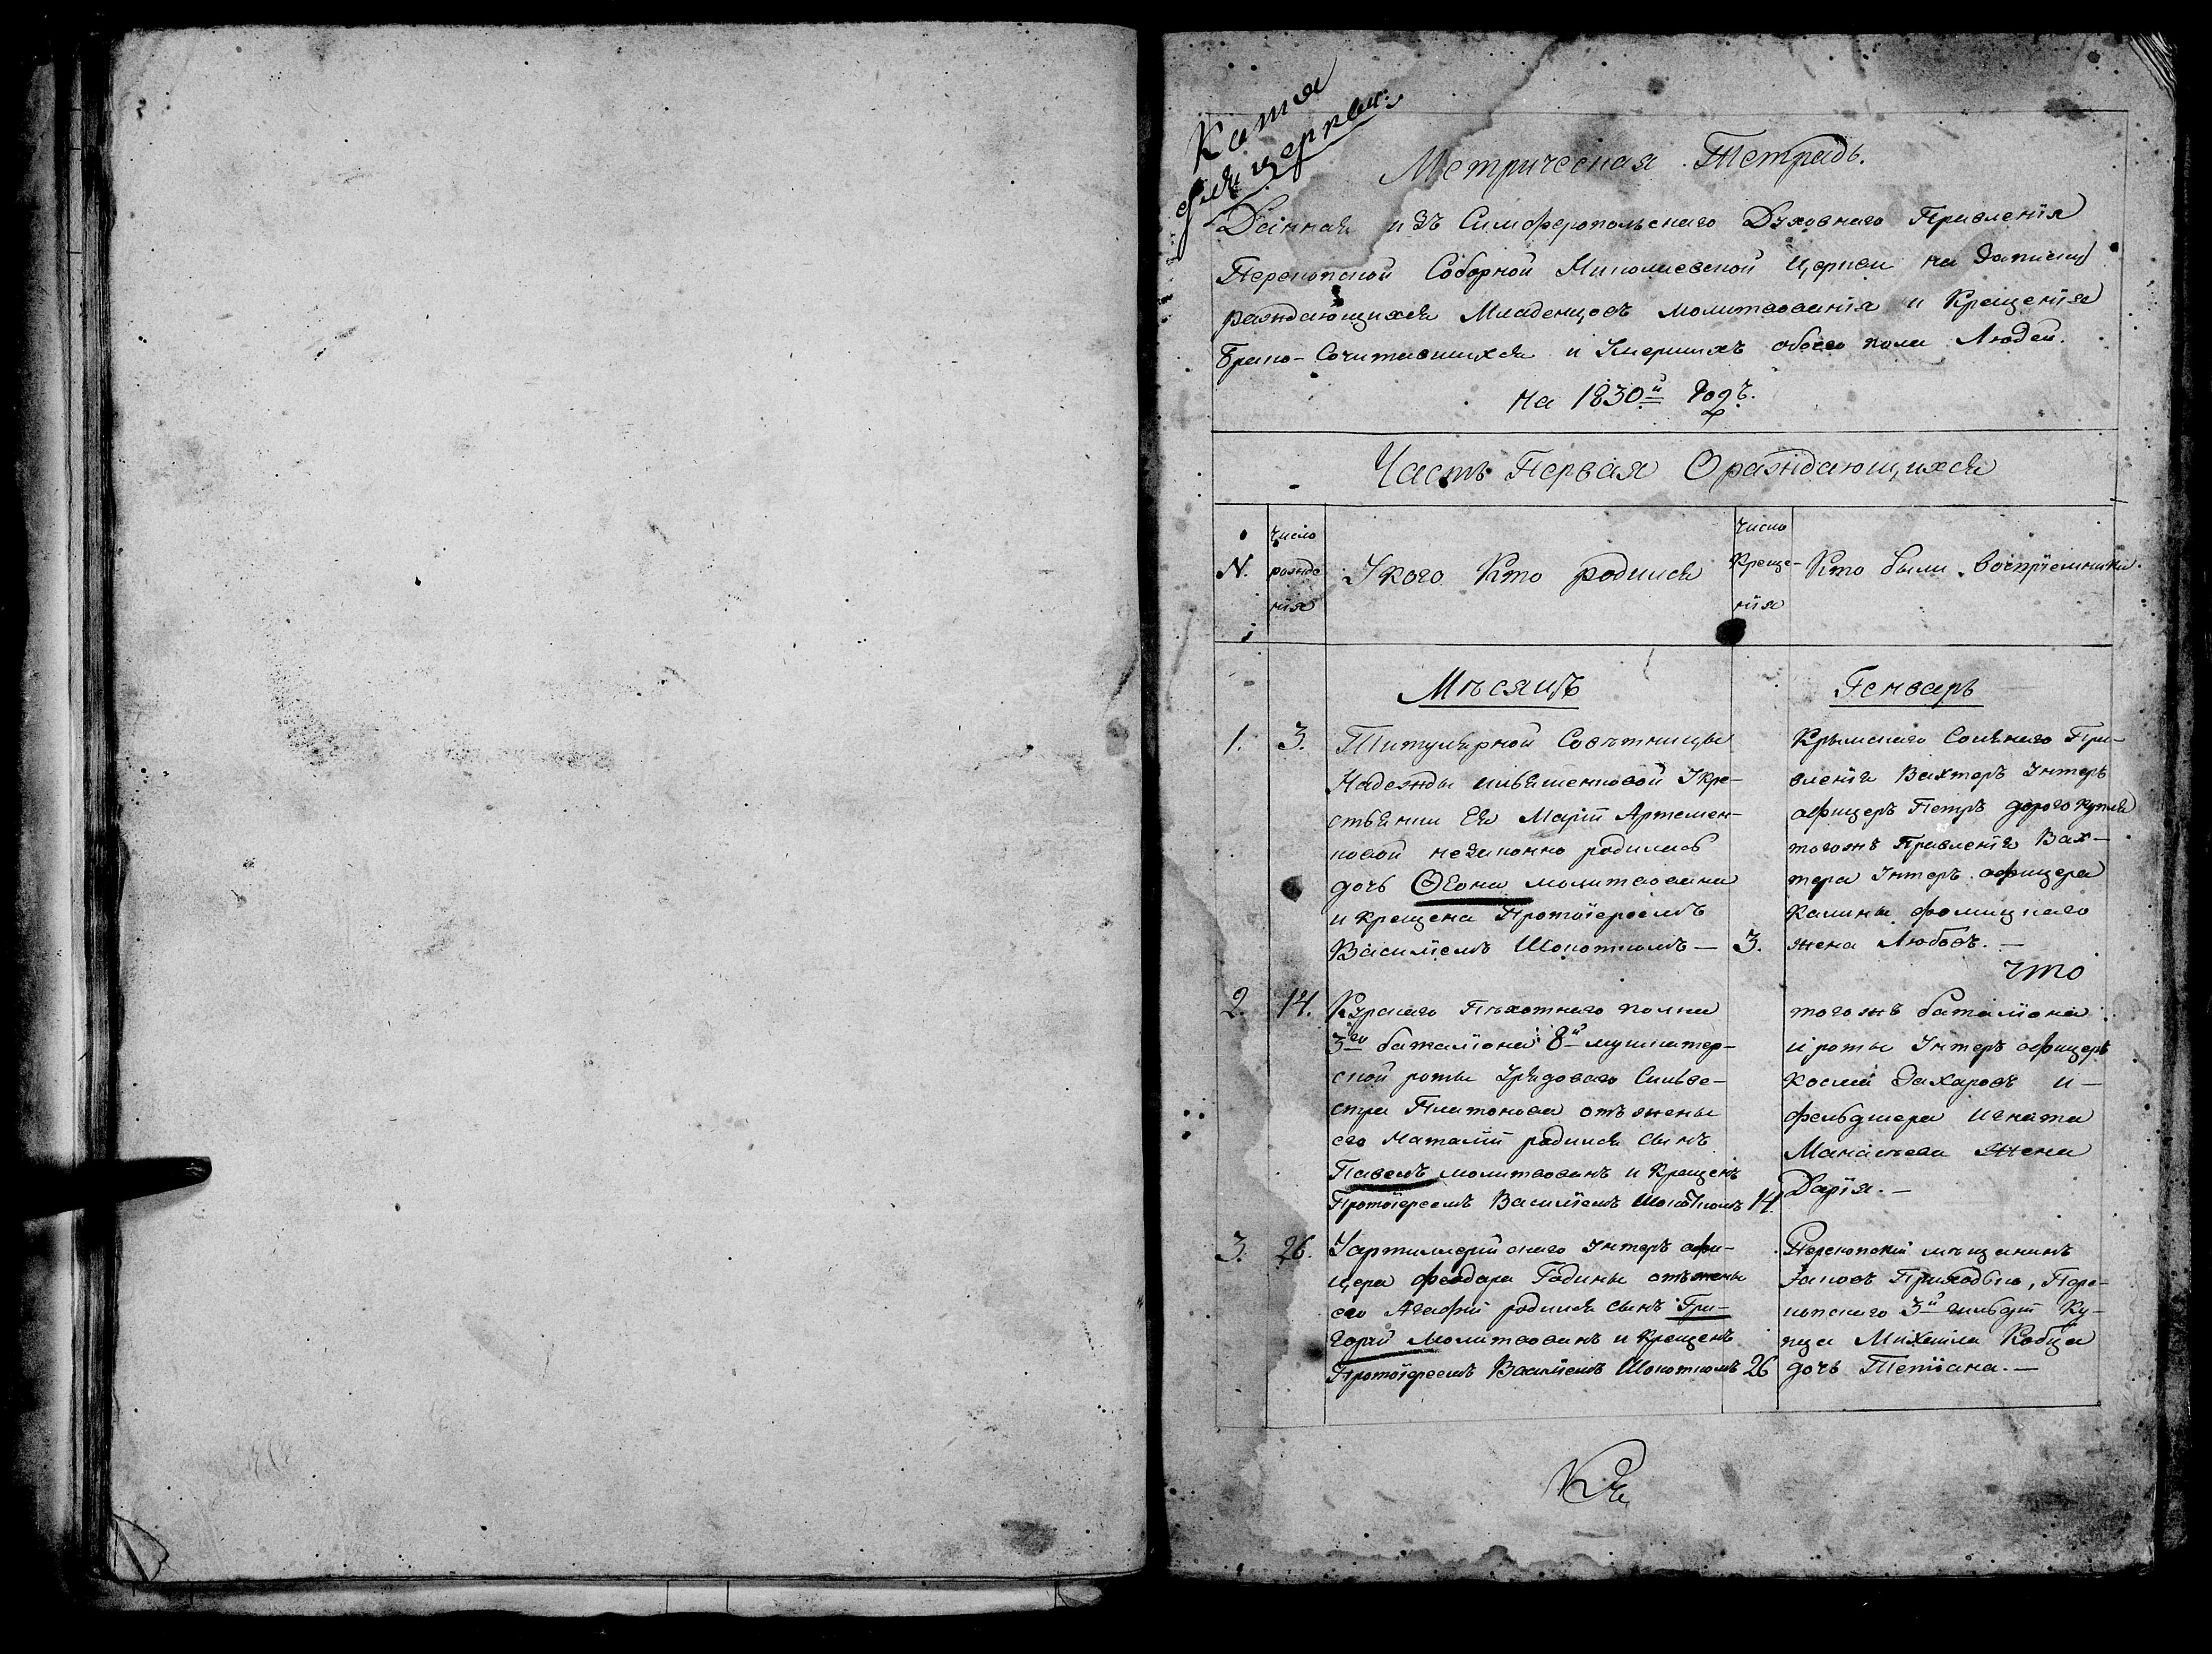 Копія
для церкви
Метрическая Тетрадь.
Данная изъ Симферопольскаго Духовнаго Правленія
Перекопской Соборной Николаевской Церкви на записку
раждающихся Младенцовъ молитвованія и Крещенія
Брако-Сочитавшихся и Умершихъ обоего пола Людей.
на 1830й Годъ.
Часть Первая О раждающихся
N.
число
рожде
нія
У кого Кто родился
число
Креще-
нія
Кто были воспріемники.
Мѣсяцъ
Генварь
1.
3.
Титулярной Совѣтницы
Надежды Ильяшенковой У кре-
стьянки Ея Маріи Артемен-
ковой незаконно родилась
дочь Ѳеона молитвована
и крещена Протоіереемъ
Василіемъ Шокоткомъ —
3.
Крымскаго Солянаго Пра-
вленія Вахторъ Унтеръ
афицеръ Петръ дорогокупля
тогожъ Правленія Вах-
тера Унтеръ афицера
Калины фомицкаго
жена Любовь. —
что
2.
14.
Курскаго Пѣхотнаго полка
3го баталіона 8й мушкатер-
ской роты Урядоваго Сильве-
стра Платонова отъ жены
его Наталіи родился сынъ
Павелъ молитвованъ и Крещенъ
Протоіереемъ Василіемъ Шокоткомъ
14.
тогожъ баталіона
и роты Унтеръ афицеръ
Косма Захаровъ и —
фельдшера Игната
Манаѣева Жена
Дарія. —
3.
26.
У артиллерійскаго Унтеръ афи-
цера феодара Годины отъ жены
его Агафіи родился сынъ Гри-
горій Молитвованъ и Крещенъ
Протоіереемъ Василіемъ Шокоткомъ
26
Перекопскій мѣщанинъ
Яковъ Приходько, Пере-
копскаго 3й гильдіи Ку-
пца Михаила Кобца
дочь Тетіана. —